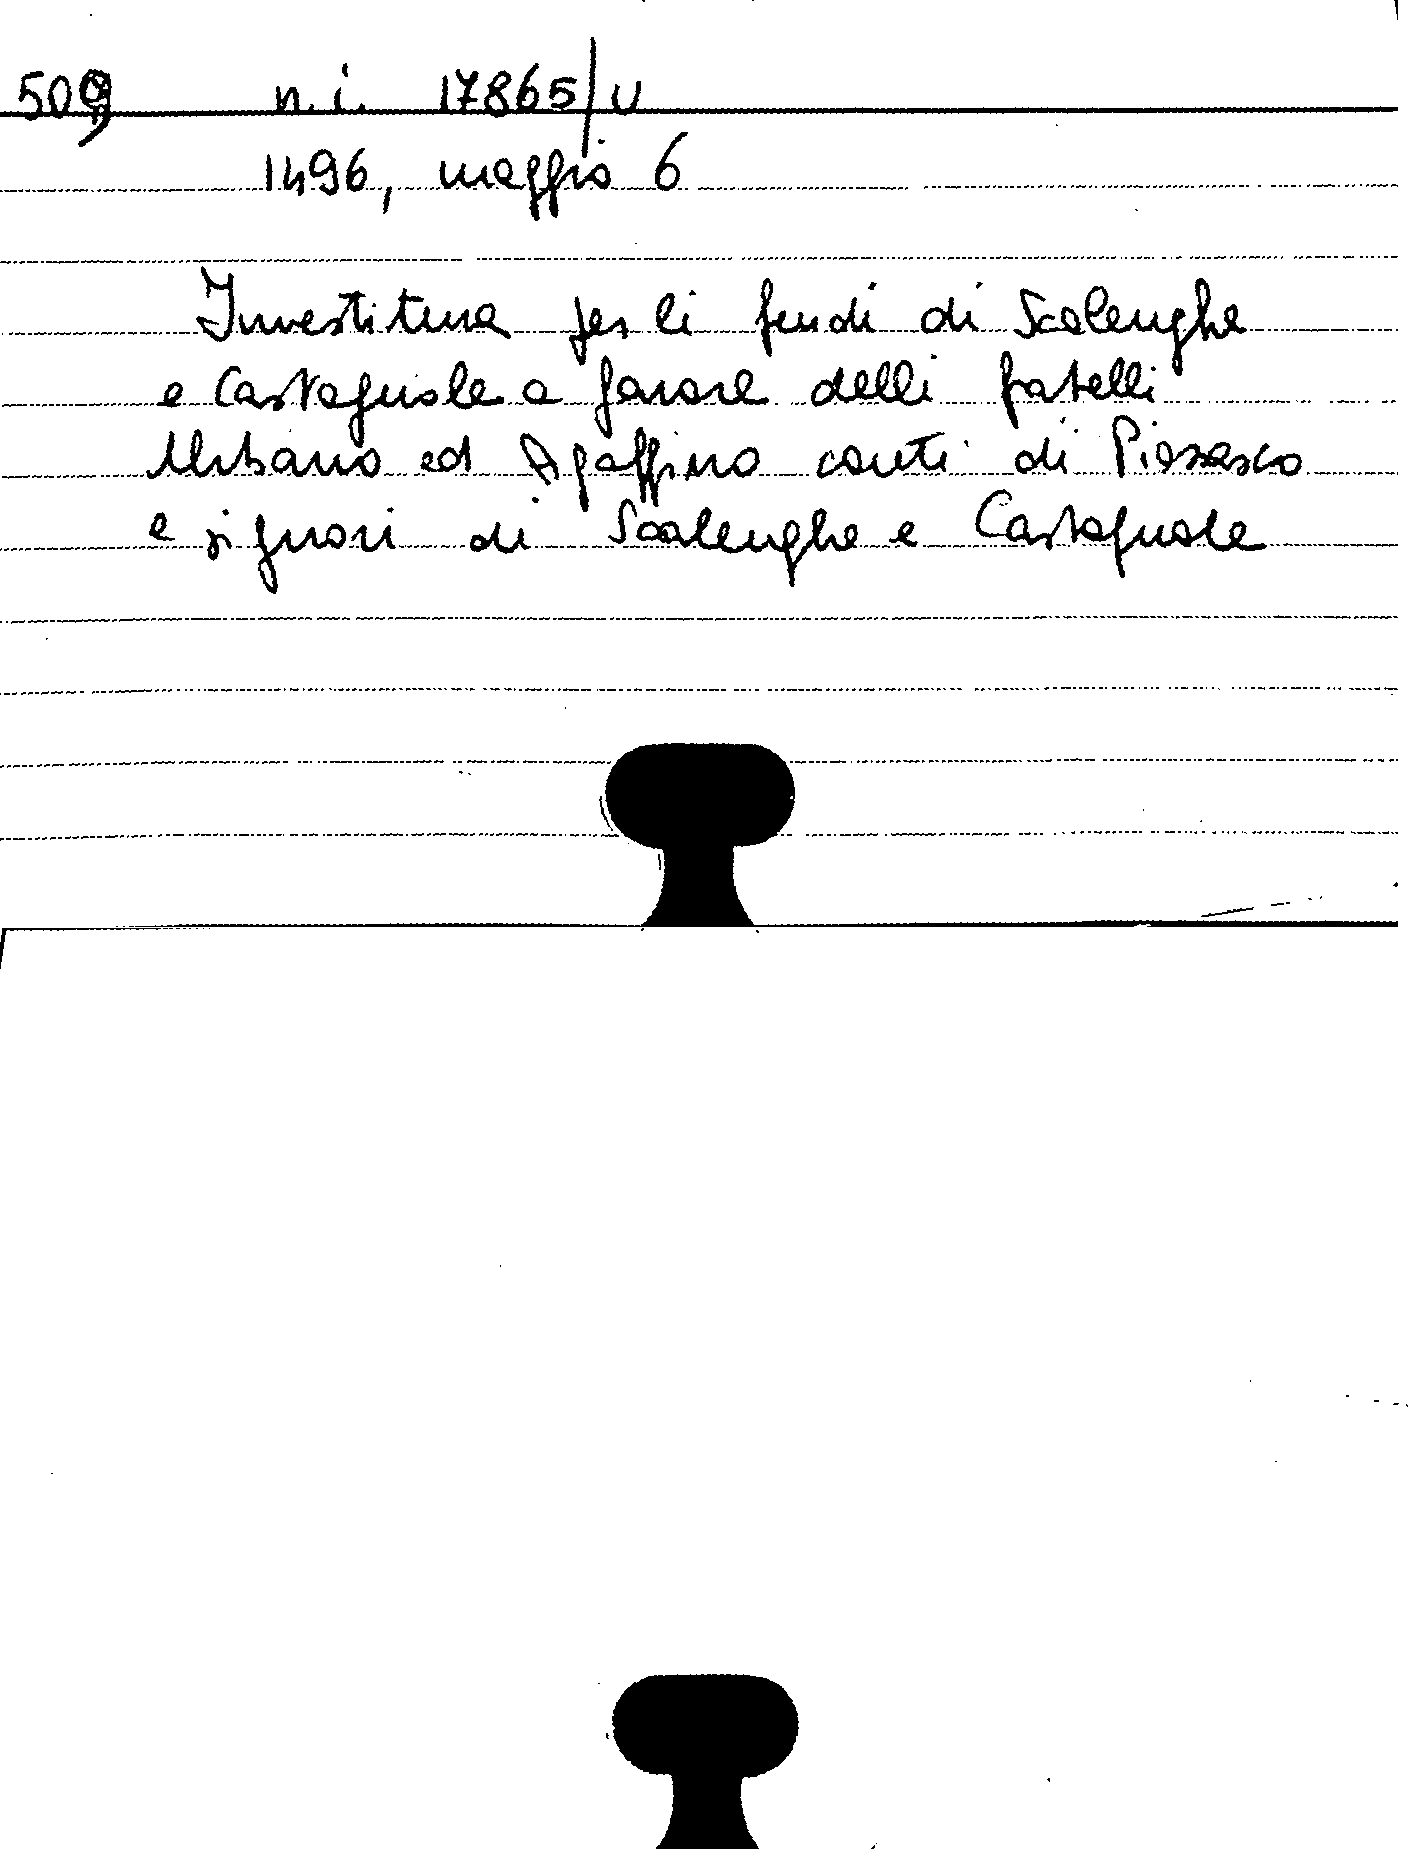 509 n. i. 17865/U
1496, maggio 6
Investitura per li feudi di Scalenghe
e Castagnole a favore delli fratelli
Urbano ed Agaffino conti di Piossasco
e signori di Scalenghe e Castagnole